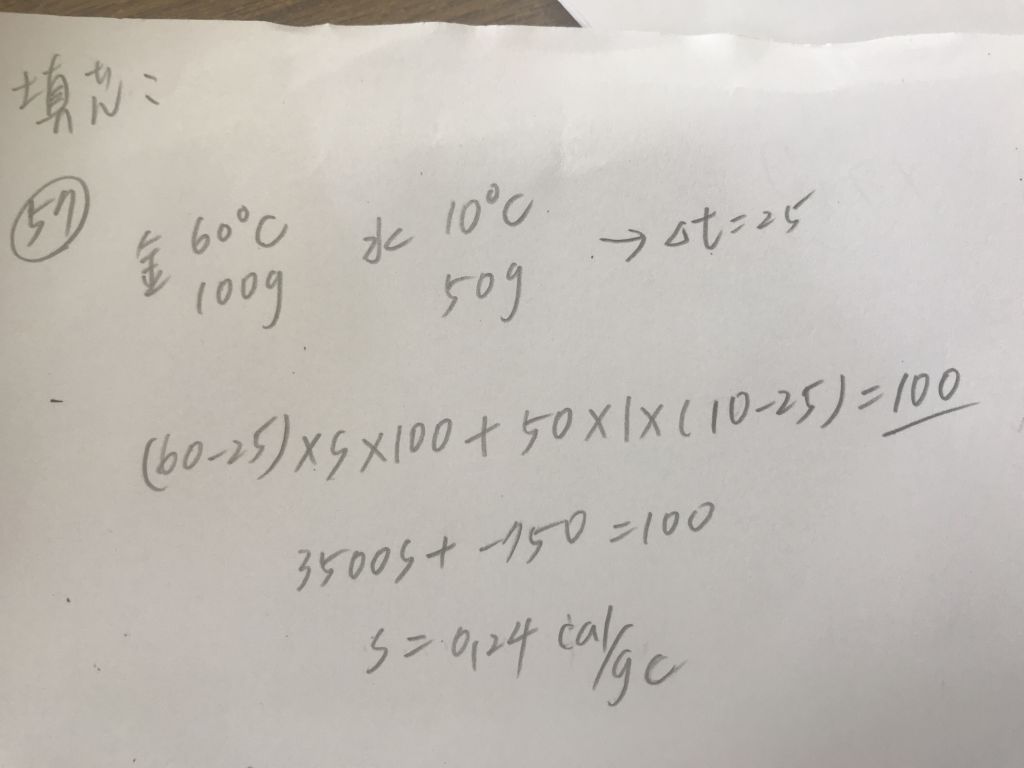 填充:
57
金 60°C 水 10°C → Δt=25
100g 50g
(60-25)×S×100+50×1×(10-25)=100
3500S+-750=100
S=0,24 cal/gc